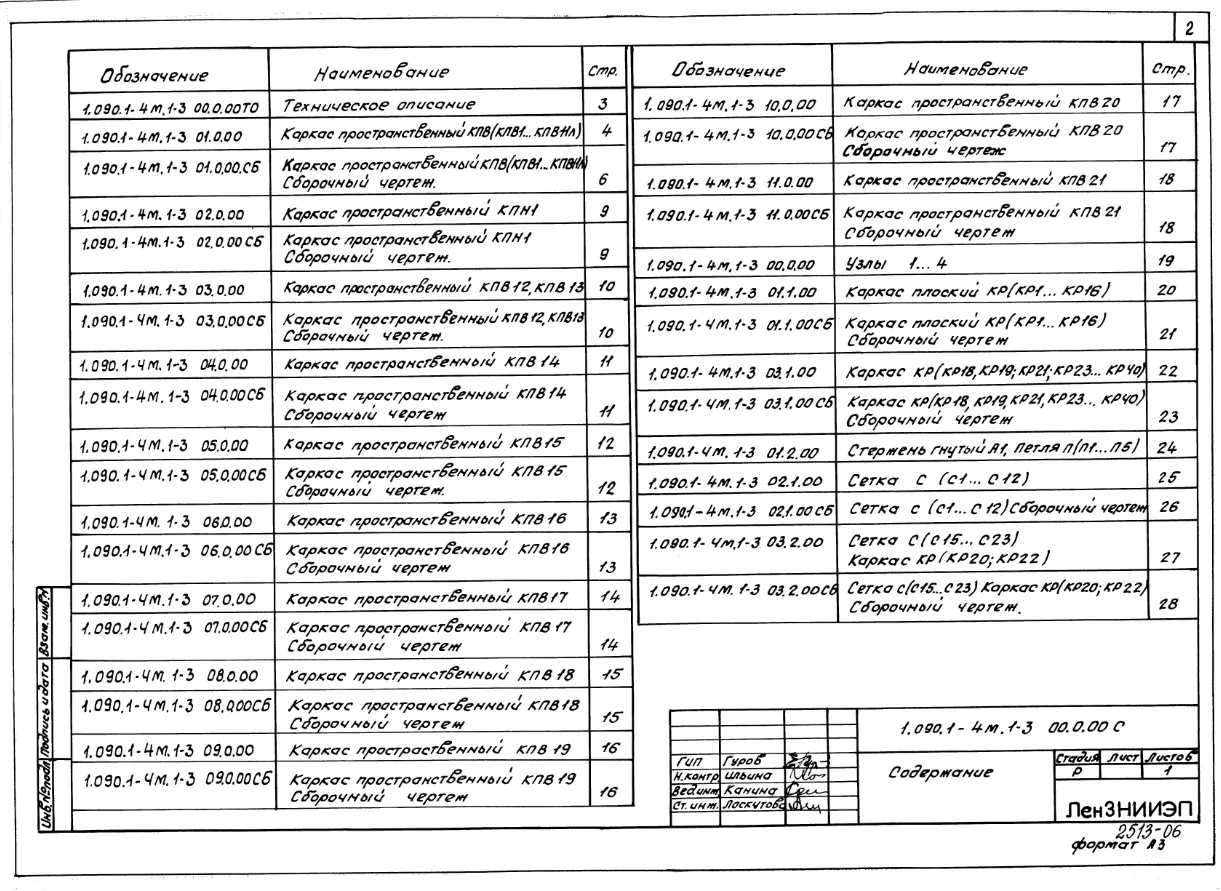 2
Обозначение Наименование Стр.
1.090.1-4м.1-3 00.0.00ТО Техническое описание 3
1.090.1-4м.1-3 01.0.00 Каркас пространственный КПВ(КПВ1...КПВ11л) 4
1.090.1-4м.1-3 01.0.00.СБ Каркас пространственный КПВ(КПВ1...КПВ11л)
Сборочный чертеж. 6
1.090.1-4м.1-3 02.0.00 Каркас пространственный КПН1 9
1.090.1-4м.1-3 02.0.00СБ Каркас пространственный КПН1
Сборочный чертеж. 9
1.090.1-4м.1-3 03.0.00 Каркас пространственный КПВ12, КПВ13 10
1.090.1-4м.1-3 03.0.00СБ Каркас пространственный КПВ12, КПВ13
Сборочный чертеж. 10
1.090.1-4м.1-3 04.0.00 Каркас пространственный КПВ14 11
1.090.1-4м.1-3 04.0.00СБ Каркас пространственный КПВ14
Сборочный чертеж 11
1.090.1-4м.1-3 05.0.00 Каркас пространственный КПВ15 12
1.090.1-4м.1-3 05.0.00СБ Каркас пространственный КПВ15
Сборочный чертеж. 12
1.090.1-4м.1-3 06.0.00 Каркас пространственный КПВ16 13
1.090.1-4м.1-3 06.0.00СБ Каркас пространственный КПВ16
Сборочный чертеж 13
1.090.1-4м.1-3 07.0.00 Каркас пространственный КПВ17 14
1.090.1-4м.1-3 07.0.00СБ Каркас пространственный КПВ17
Сборочный чертеж 14
1.090.1-4м.1-3 08.0.00 Каркас пространственный КПВ18 15
1.090.1-4м.1-3 08.0.00СБ Каркас пространственный КПВ18
Сборочный чертеж 15
1.090.1-4м.1-3 09.0.00 Каркас пространственный КПВ19 16
1.090.1-4м.1-3 09.0.00СБ Каркас пространственный КПВ19
Сборочный чертеж 16
Обозначение Наименование Стр.
1.090.1-4м.1-3 10.0.00 Каркас пространственный КПВ20 17
1.090.1-4м.1-3 10.0.00СБ Каркас пространственный КПВ20
Сборочный чертеж 17
1.090.1-4м.1-3 11.0.00 Каркас пространственный КПВ21 18
1.090.1-4м.1-3 11.0.00СБ Каркас пространственный КПВ21
Сборочный чертеж 18
1.090.1-4м.1-3 00.0.00 Узлы 1...4 19
1.090.1-4м.1-3 01.1.00 Каркас плоский КР(КР1...КР16) 20
1.090.1-4м.1-3 01.1.00СБ Каркас плоский КР(КР1...КР16)
Сборочный чертеж 21
1.090.1-4м.1-3 03.1.00 Каркас КР(КР18,КР19;КР21;КР23...КР40) 22
1.090.1-4м.1-3 03.1.00СБ Каркас КР(КР18, КР19, КР21, КР23...КР40)
Сборочный чертеж 23
1.090.1-4м.1-3 01.2.00 Стержень гнутый А1, Петля П(П1...П5) 24
1.090.1-4м.1-3 02.1.00 Сетка С (С1...С12) 25
1.090.1-4м.1-3 02.1.00СБ Сетка С (С1...С12) Сборочный чертеж 26
1.090.1-4м.1-3 03.2.00 Сетка С(С15...С23)
Каркас КР(КР20; КР22) 27
1.090.1-4м.1-3 03.2.00СБ Сетка С(С15...С23) Каркас КР(КР20; КР22)
Сборочный чертеж. 28
Инв.№подл. Подпись и дата Взам.инв.№
1.090.1-4м.1-3 00.0.00 С
ГИП Гуров
Н.контр Ильина
Вед.инж Канина
Ст.инж. Лоскутова
Содержание
Стадия Лист Листов
Р 1
ЛенЗНИИЭП
2513-06
формат А3